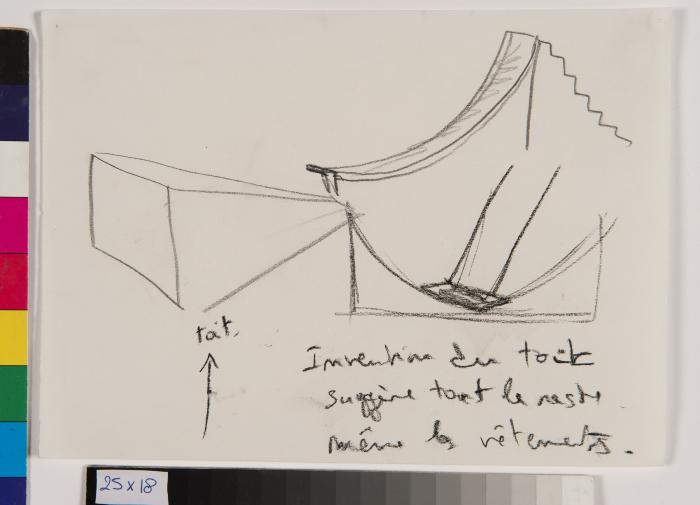 toit.
Invention du toit
suggère tout le reste
même les vêtements.
25x18